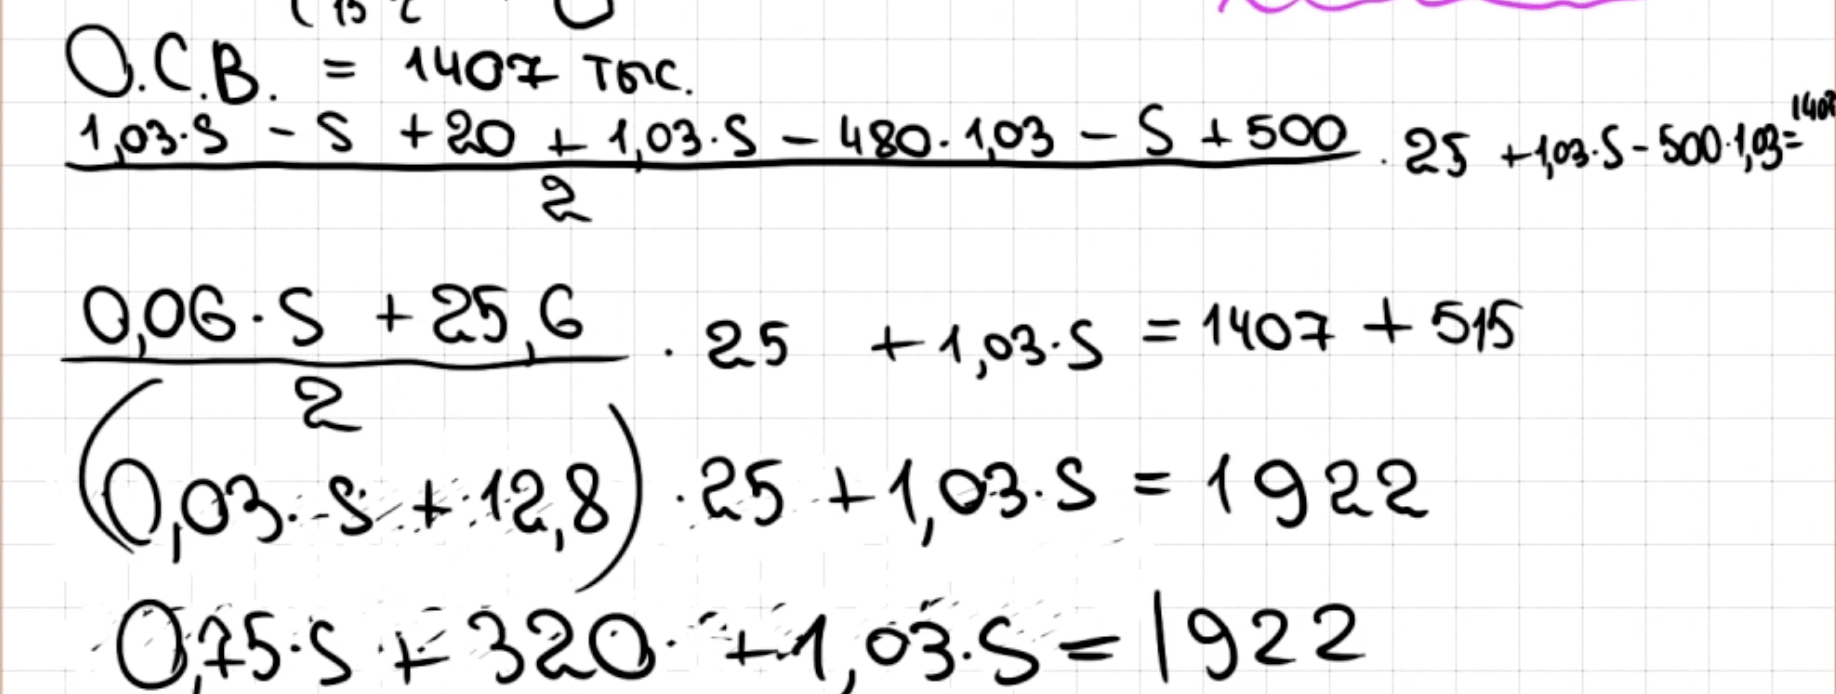 О.С.В. = 1407 тыс.
(1,03·S - S + 20 + 1,03·S - 480·1,03 - S + 500)/2 · 25 + 1,03·S - 500·1,03 = 1407
(0,06·S + 25,6)/2 · 25 + 1,03·S = 1407 + 515
(0,03·S + 12,8) · 25 + 1,03·S = 1922
0,75·S + 320 + 1,03·S = 1922